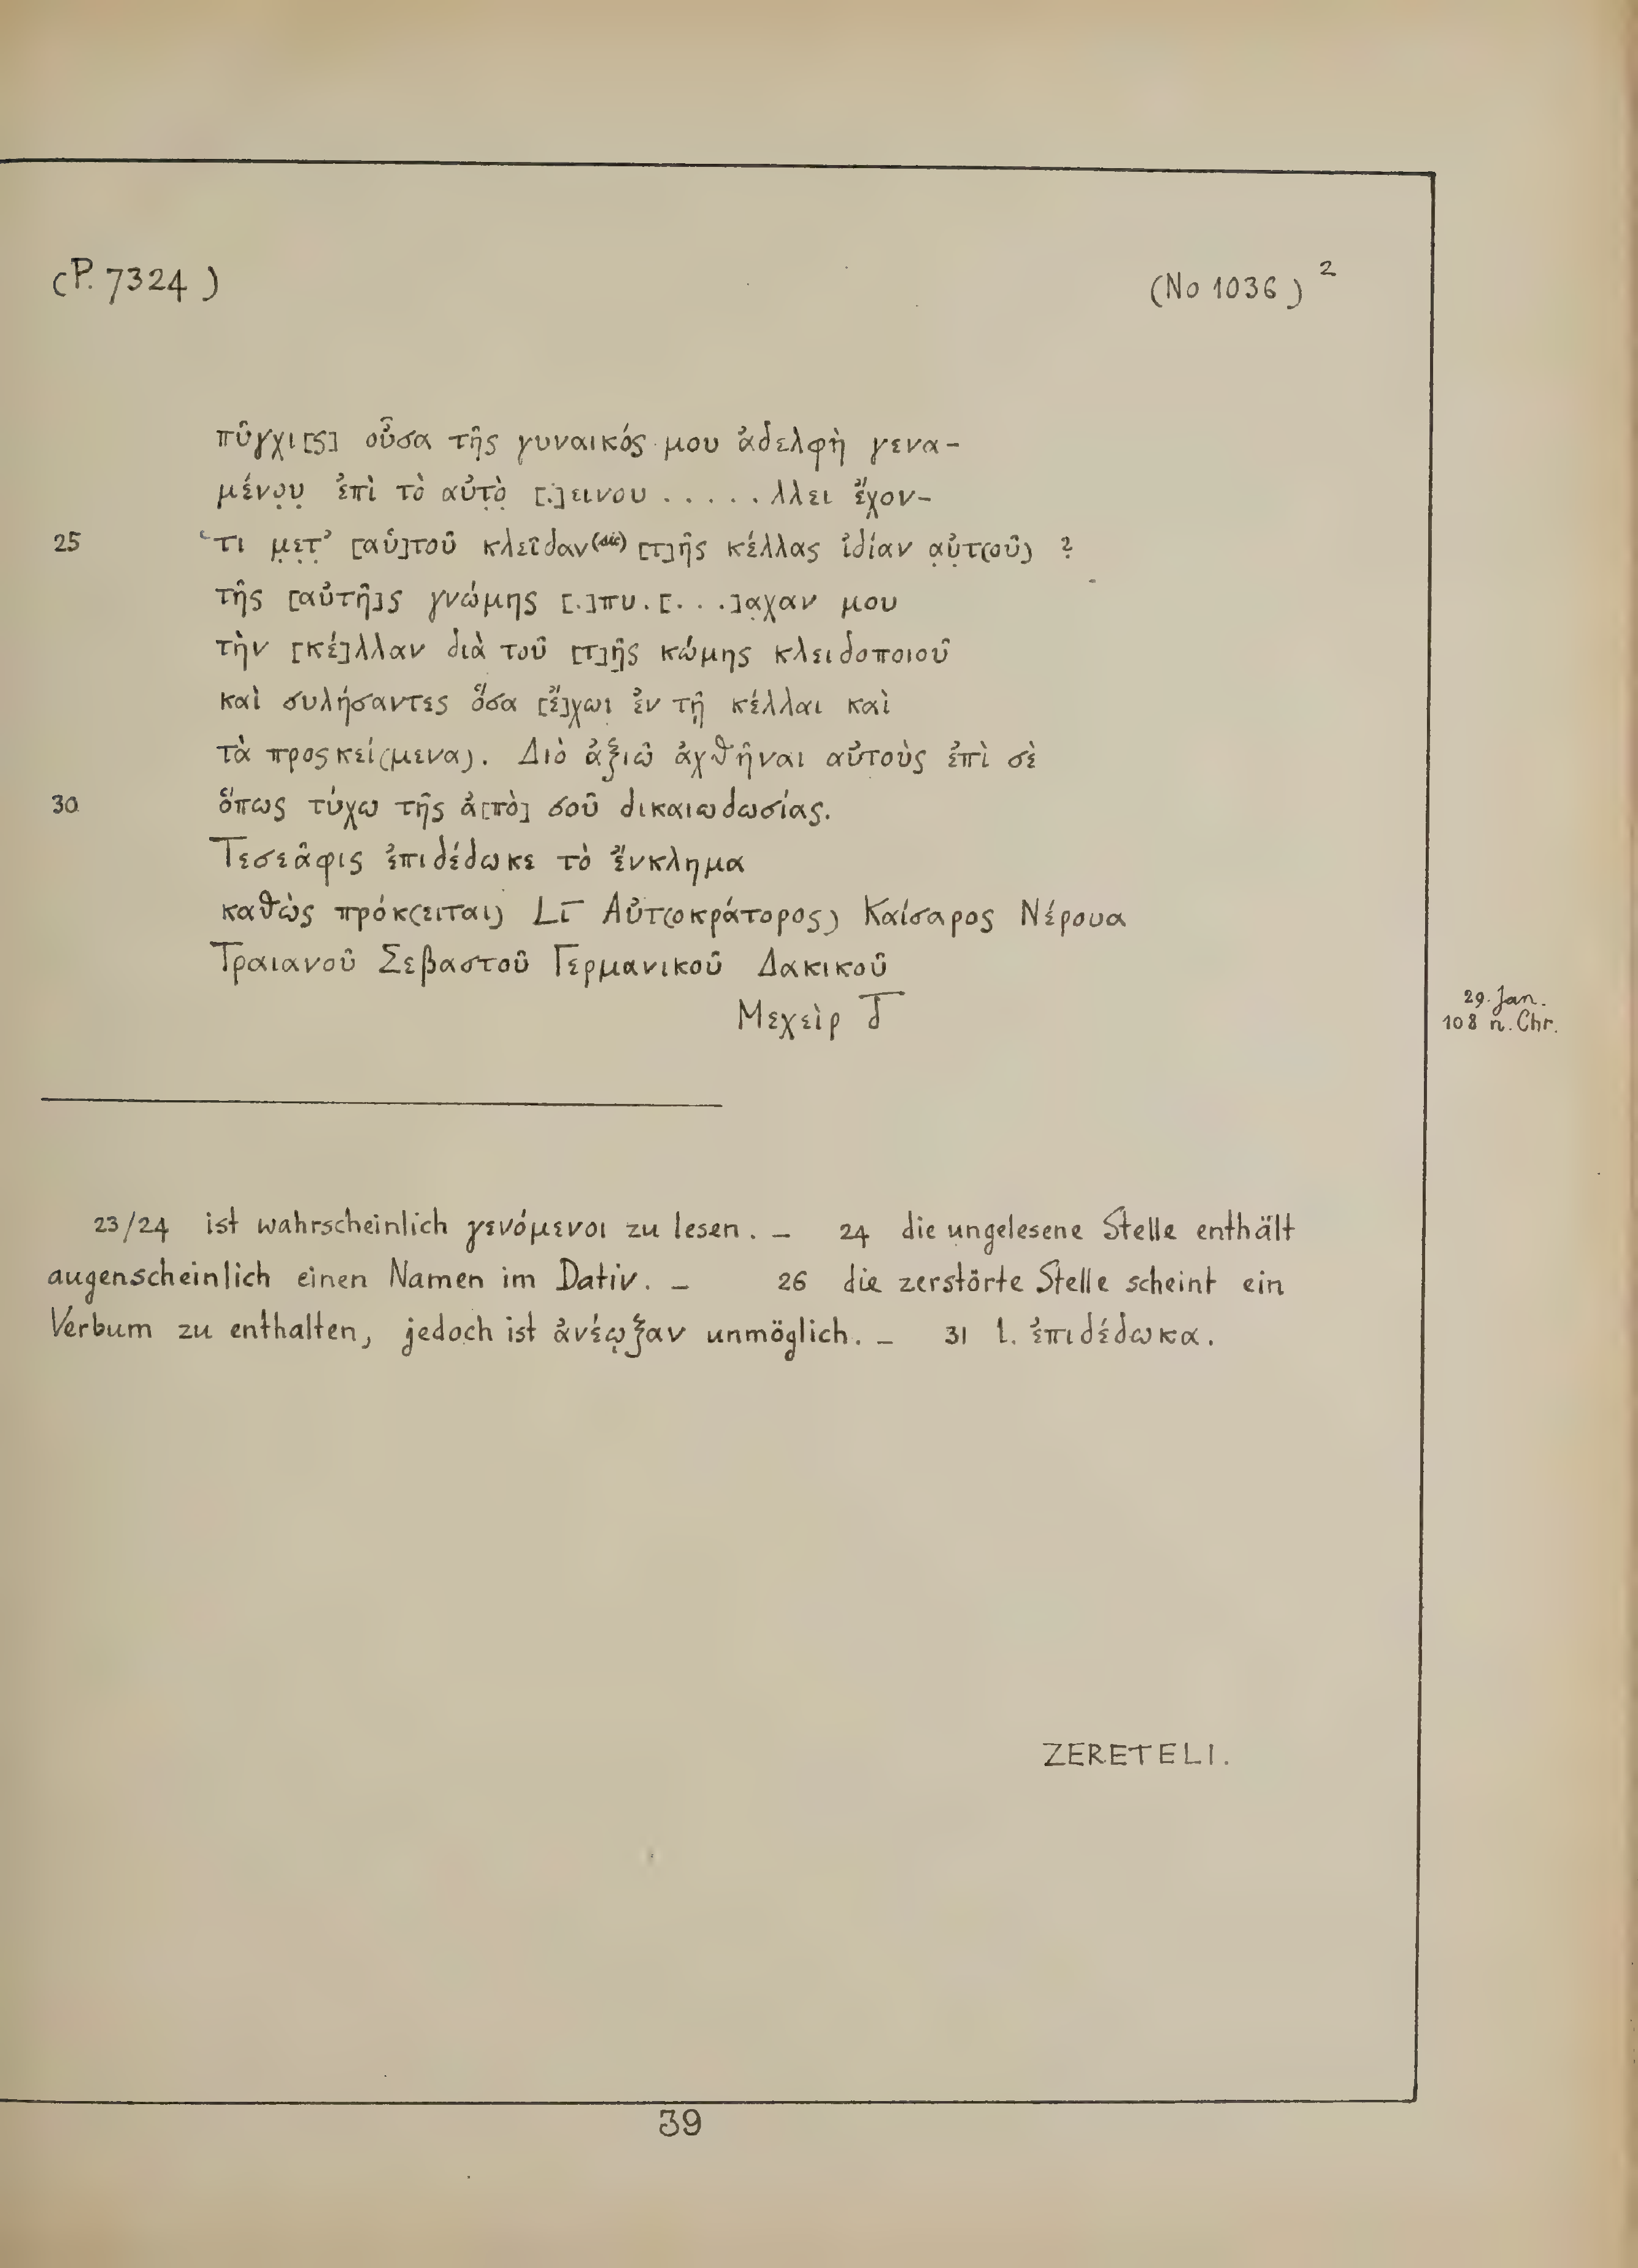 (P. 7324) (No 1036)²
πῦγχι[ς] οὖσα τῆς γυναικός μου ἀδελφὴ γενα-
μένο̣υ̣ ἐπὶ τὸ αὐτ̣ὸ̣ [.]εινου . . . . . λλει ἔχον-
25 τι μ̣ε̣τ̣' [αὑ]τοῦ κλεῖδαν (sic) [τ]ῆς κέλλας ἰδίαν α̣ὐ̣τ(οῦ) ?
τῆς [αὐτῆ]ς γνώμης [.]πυ.[. . .]α̣χαν μου
τὴν [κέ]λλαν διὰ τοῦ [τ]ῆ̣ς κώμης κλειδοποιοῦ
καὶ συλήσαντες ὅσα [ἔ]χωι ἐν τῇ κέλλαι καὶ
τὰ προσκεί(μενα). Διὸ ἀξιῶ ἀχθῆναι αὐτοὺς ἐπὶ σὲ
30 ὅπως τύχω τῆς ἀ[πὸ] σοῦ δικαιωδωσίας.
Τεσεᾶφις ἐπιδέδωκε τὸ ἔνκλημα
καθὼς πρόκ(ειται) L ι̅α̅ Αὐτ(οκράτορος) Καίσαρος Νέρουα
Τραιανοῦ Σεβαστοῦ Γερμανικοῦ Δακικοῦ
Μεχεὶρ δ̅
29. Jan.
108 n. Chr.
23/24 ist wahrscheinlich γενόμενοι zu lesen. — 24 die ungelesene Stelle enthält
augenscheinlich einen Namen im Dativ. — 26 die zerstörte Stelle scheint ein
Verbum zu enthalten, jedoch ist ἀνέῳξαν unmöglich. — 31 l. ἐπιδέδωκα.
ZERETELI.
39